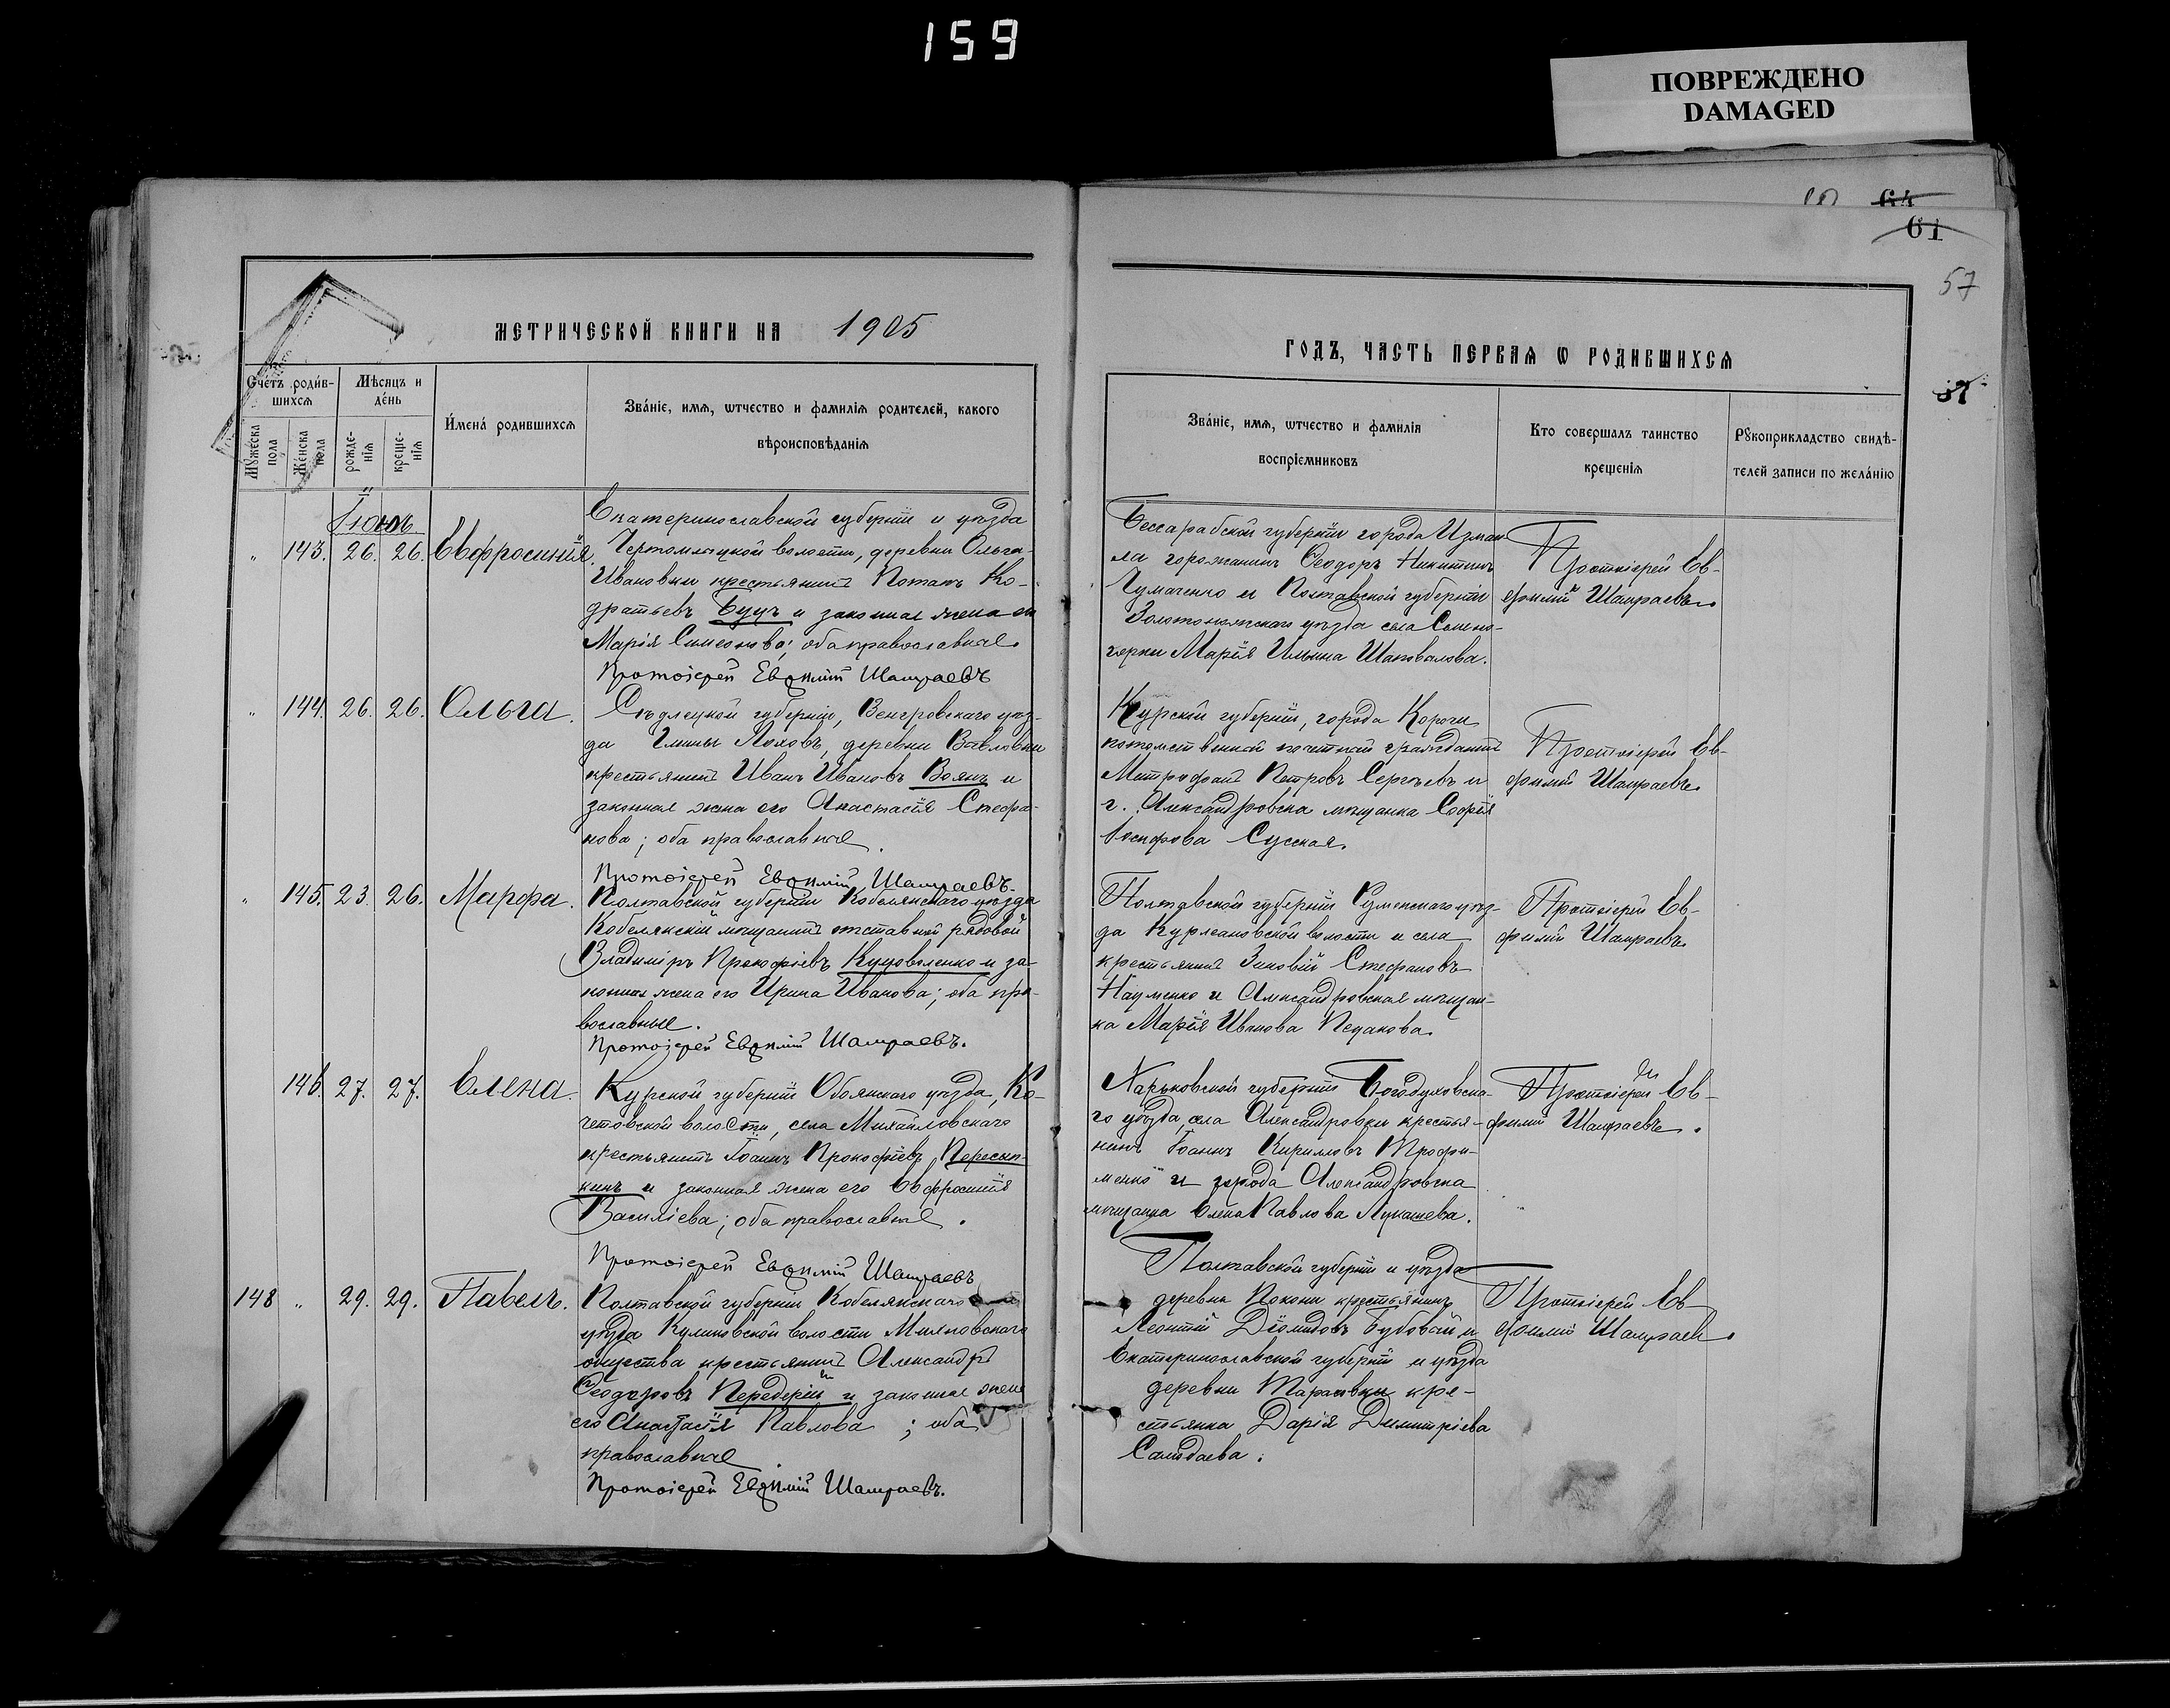 159
ПОВРЕЖДЕНО
DAMAGED
64
61
57
МЕТРИЧЕСКОЙ КНИГИ НА 1905
ГОДЪ, ЧАСТЬ ПЕРВАѦ Ѡ РОДИВШИХСѦ
Счетъ родив-
шихсѧ
Мѣсяцъ и
день
Мꙋжеска
пола
Женска
пола
рожде-
нїѧ
креще-
нїѧ
Имена родившихсѧ
Званїе, имѧ, ѡтчество и фамилїѧ родителей, какого
вѣроисповѣданїѧ
Званїе, имѧ, ѡтчество и фамилїѧ
воспрїемниковъ
Кто совершалъ таинство
крещенїѧ
Рꙋкоприкладство свидѣ-
телей записи по желанїю
Іюнь
„ 143. 26. 26. Евфросинія.
Екатеринославской губерніи и уѣзда
Чертомлыцкой волости, деревни Ольго-
Ивановки крестьянинъ Потапъ Ко-
дратьевъ Буцъ и законная жена его
Марія Симеонова; оба православные.
Протоіерей Евѳимій Шамраевъ
Бессарабской губерніи города Измаи-
ла горожанинъ Ѳеодоръ Никитинъ
Чумаченко и Полтавской губерніи
Золотоношскаго уѣзда села
Марія Ильина Шаповалова.
Протоіерей Ев-
фимій Шамраевъ.
„ 144. 26. 26. Ольга.
Сѣдлецкой губерніи, Венгровскаго уѣз-
да Гмины Лоховъ, деревни
крестьянинъ Иванъ Ивановъ Воянъ и
законная жена его Анастасія Стефа-
нова; оба православные.
Протоіерей Евѳимій Шамраевъ.
Курской губерніи, города Корочи
потомственный почетный гражданинъ
Митрофанъ Петровъ Сергѣевъ и
г. Александровска мѣщанка Софія
Іосифова Сусская.
Протоіерей Ев-
фимій Шамраевъ.
„ 145. 23. 26. Марфа.
Полтавской губерніи Кобелякскаго уѣзда
Кобелякскій мѣщанинъ отставной рядовой
Владиміръ Прокофіевъ и за-
конная жена его Ирина Иванова; оба пра-
вославные.
Протоіерей Евѳимій Шамраевъ.
Полтавской губерніи уѣз-
да волости и села
крестьянинъ Зиновій Стефановъ
Науменко и Александровская мѣщан-
ка Марія Иванова
Протоіерей Ев-
фимій Шамраевъ.
146. 27. 27. Елена.
Курской губерніи Обоянскаго уѣзда, Ко-
четовской волости, села Михайловскаго
крестьянинъ Іоаннъ Прокофіевъ Пересып-
кинъ и законная жена его Евфросинія
Василіева; оба православные.
Протоіерей Евѳимій Шамраевъ
Харьковской губерніи Богодуховска-
го уѣзда, села Александровки крестья-
нинъ Іоаннъ Кирилловъ Трофи-
менко и города Александровска
мѣщанка Елена Павлова Лукашева.
Протоіерей Ев-
фимій Шамраевъ.
148 „ 29. 29. Павелъ.
Полтавской губерніи Кобелякскаго
уѣзда волости
общества крестьянинъ Александръ
Ѳеодоровъ Передерій и законная жена
его Анастасія Павлова; оба
православные
Протоіерей Евѳимій Шамраевъ.
Полтавской губерніи и уѣзда
деревни крестьянинъ
Леонтій Діомидовъ и
Екатеринославской губерніи и уѣзда
деревни Тарасовки кре-
стьянка Дарія Димитріева
Протоіерей Ев-
фимій Шамраев.